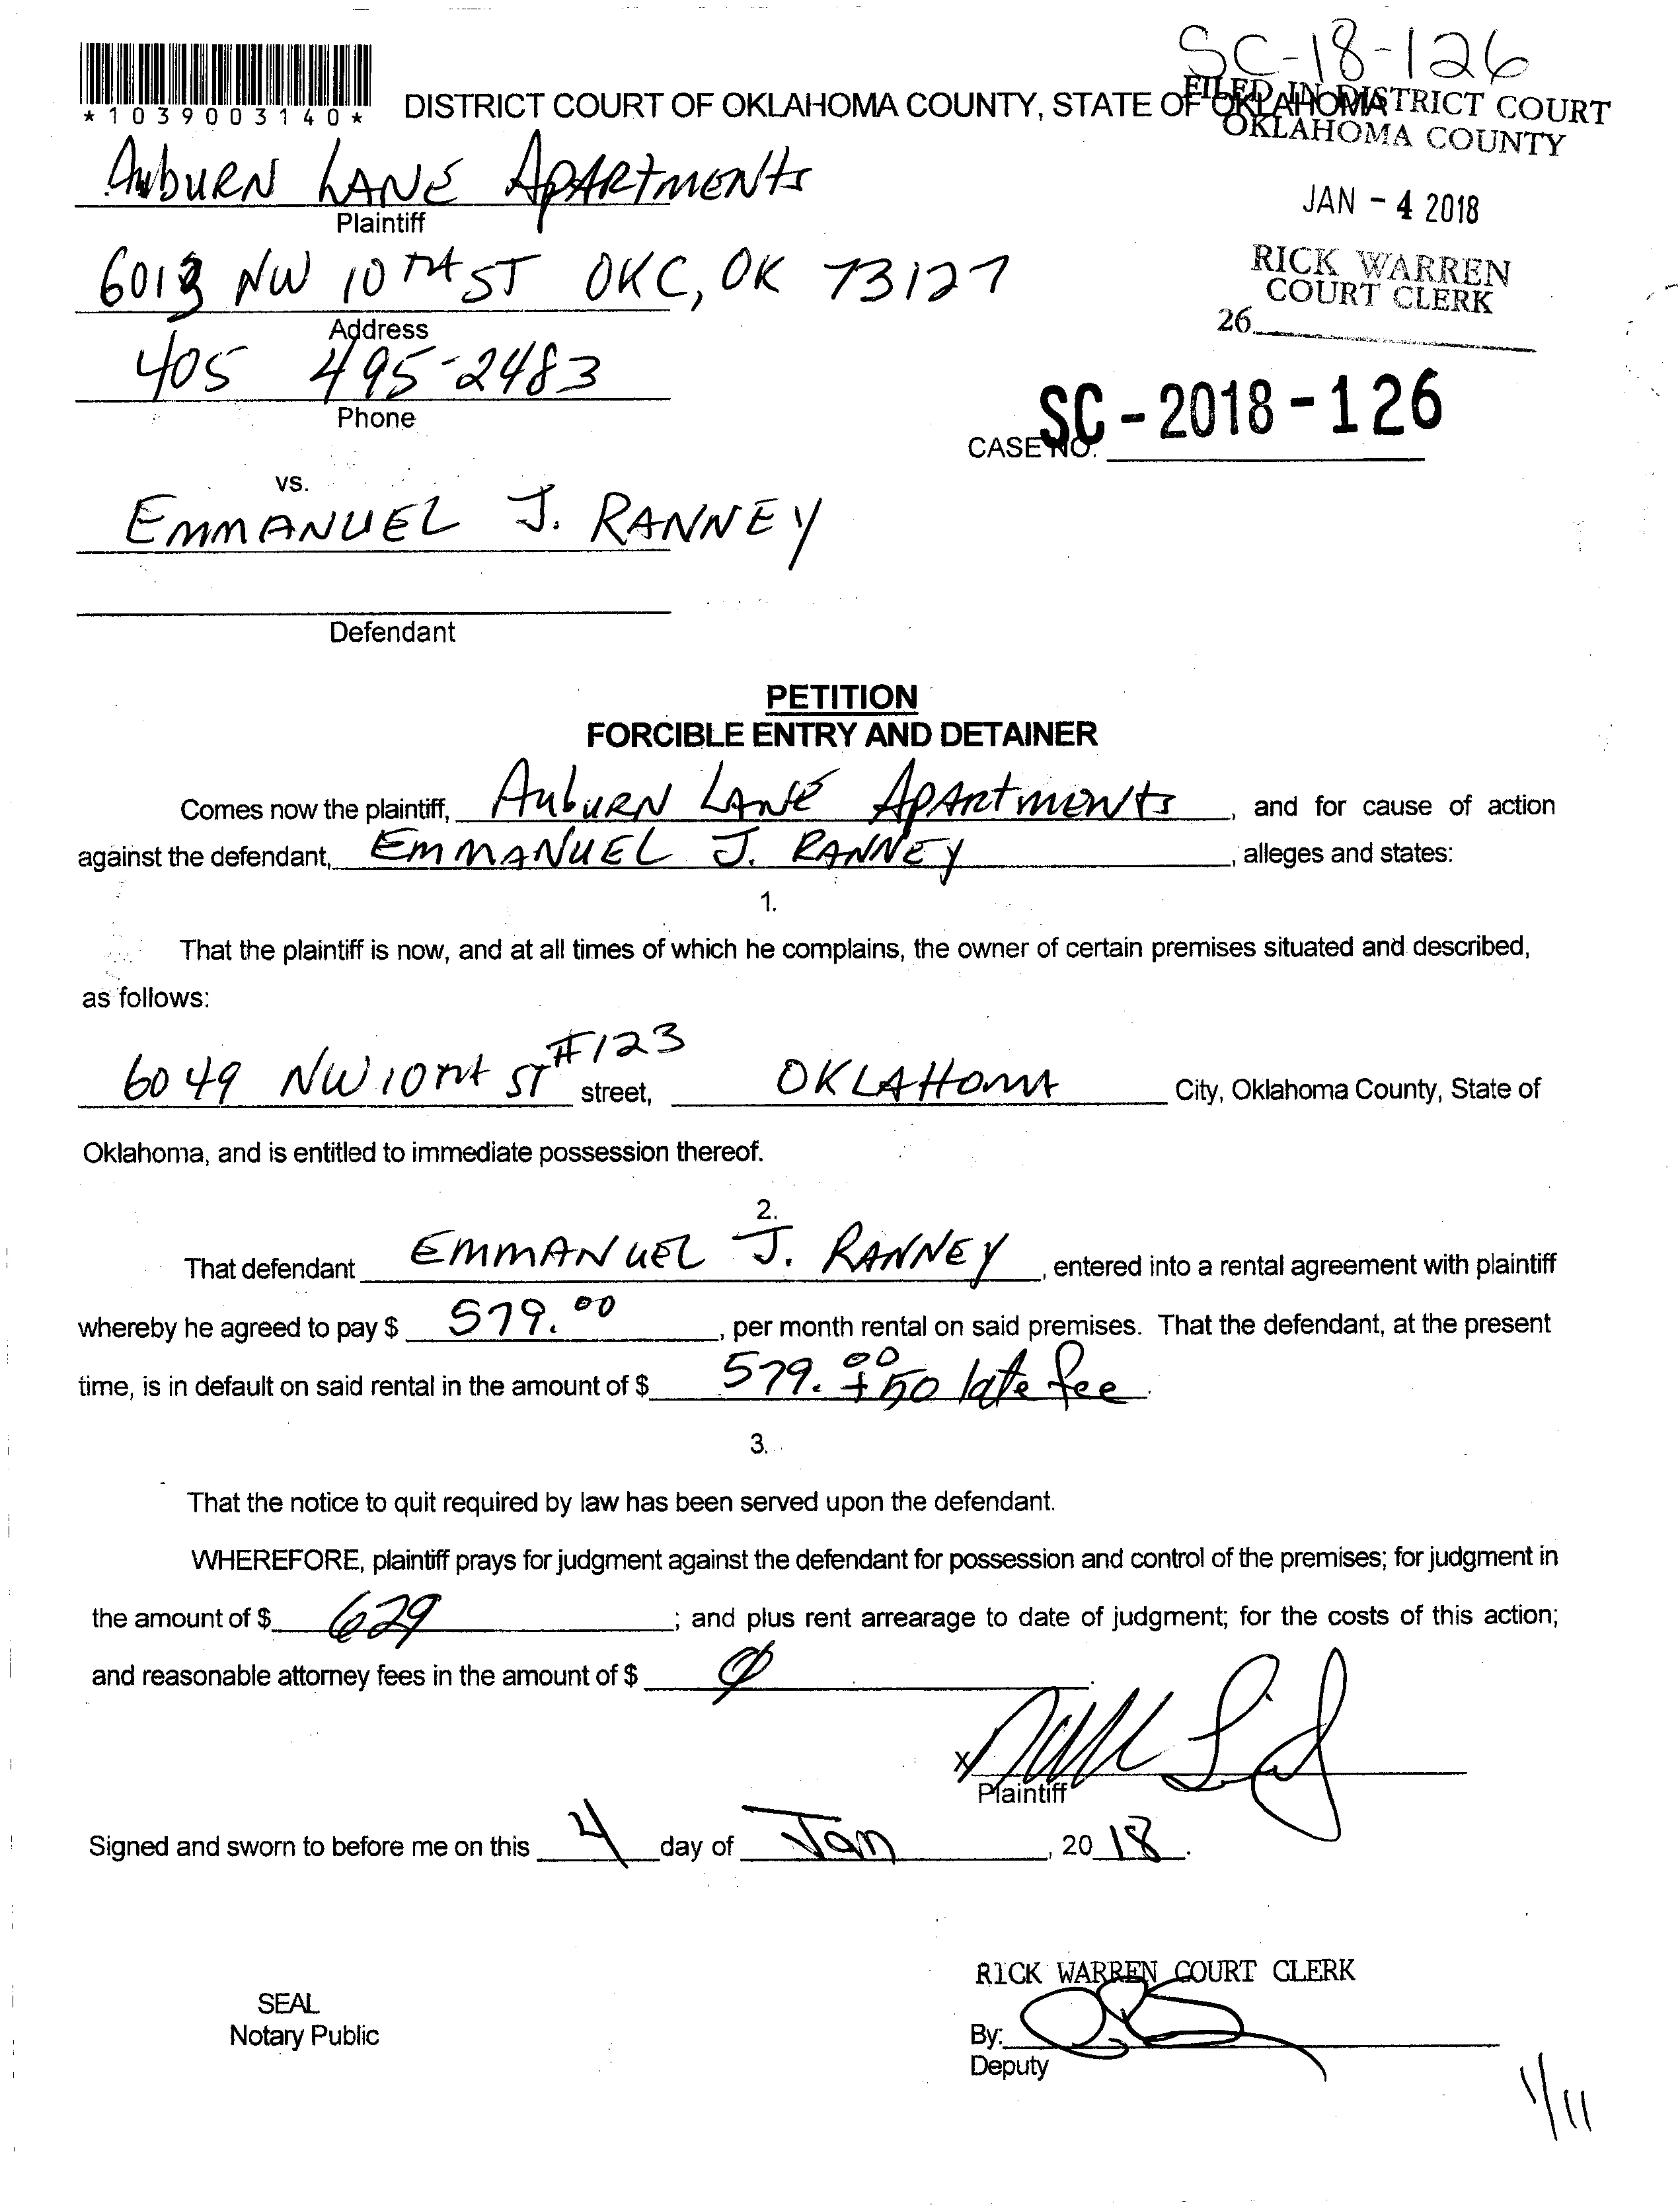 SC-18-126
*1039003140*
DISTRICT COURT OF OKLAHOMA COUNTY, STATE OF OKLAHOMA
FILED IN DISTRICT COURT
OKLAHOMA COUNTY
AuburN LANE ApARtmENts
Plaintiff
JAN - 4 2018
6013 NW 10TH ST OKC, OK 73127
Address
RICK WARREN
COURT CLERK
26
405 495-2483
Phone
CASE NO. SC-2018-126
vs.
EMMANUEL J. RANNEY
Defendant
PETITION
FORCIBLE ENTRY AND DETAINER
Comes now the plaintiff, AubURN LANE ApARtmENts, and for cause of action
against the defendant, EMMANUEL J. RANNEY, alleges and states:
1.
That the plaintiff is now, and at all times of which he complains, the owner of certain premises situated and described,
as follows:
6049 NW 10TH ST #123 street, OKLAHOMA City, Oklahoma County, State of
Oklahoma, and is entitled to immediate possession thereof.
2.
That defendant EMMANUEL J. RANNEY, entered into a rental agreement with plaintiff
whereby he agreed to pay $ 579.00, per month rental on said premises. That the defendant, at the present
time, is in default on said rental in the amount of $ 579.00 + 50 late fee.
3.
That the notice to quit required by law has been served upon the defendant.
WHEREFORE, plaintiff prays for judgment against the defendant for possession and control of the premises; for judgment in
the amount of $ 629; and plus rent arrearage to date of judgment; for the costs of this action;
and reasonable attorney fees in the amount of $ 0.
X
Plaintiff
Signed and sworn to before me on this 4 day of Jan, 2018.
RICK WARREN COURT CLERK
SEAL
Notary Public
By:
Deputy
1/11